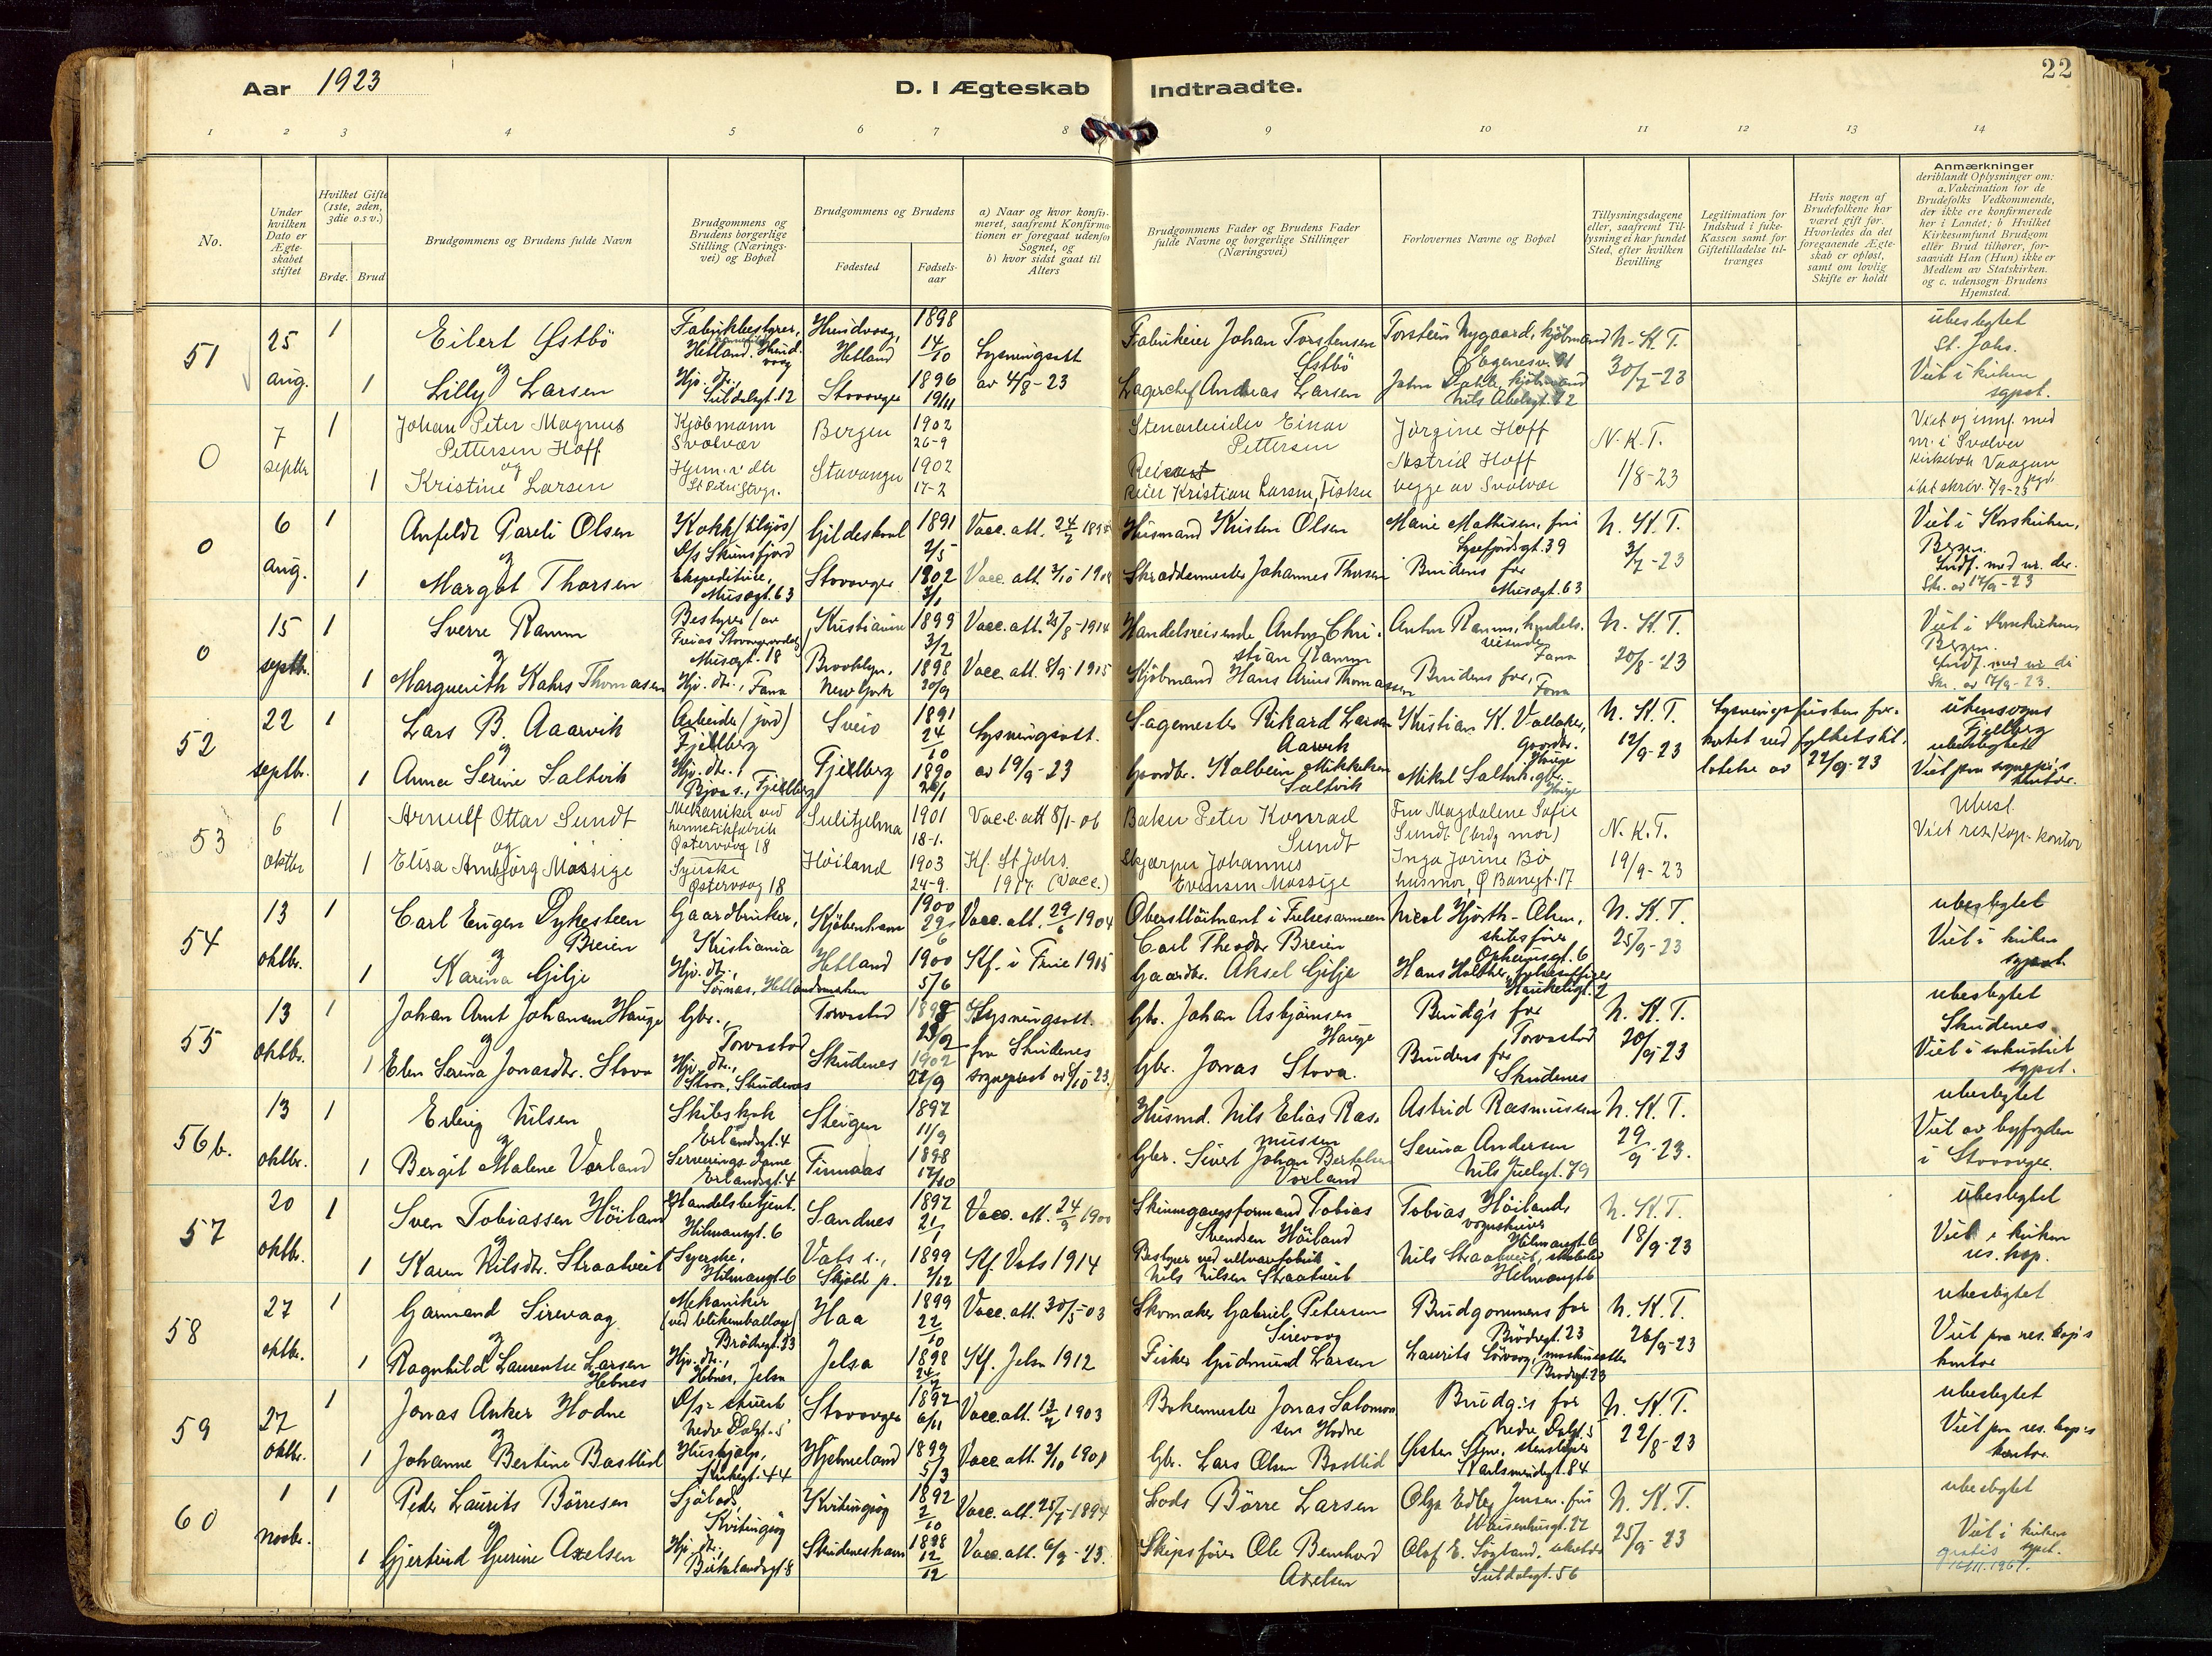 22
Aar 1923
D. I Ægteskab Indtraadte.
1 2 3 4 5 6 7 8 9 10 11 12 13 14
No.
Under hvilken Dato er Ægteskabet stiftet
Hvilket Gifte (1ste, 2den, 3die o.s v.)
Brdg. Brud
Brudgommens og Brudens fulde Navn
Brudgommens og Brudens borgerlige Stilling (Næringsvei) og Bopæl
Brudgommens og Brudens
Fødested
Fødselsaar
a) Naar og hvor konfirmeret, saafremt Konfirmationen er foregaat udenfor Sognet, og
b) hvor sidst gaat til Alters
Brudgommens Fader og Brudens Fader fulde Navne og borgerlige Stillinger (Næringsvei)
Forlovernes Navne og Bopæl
Tillysningsdagene eller, saafremt Tillysning ei har fundet Sted, efter hvilken Bevilling
Legitimation for Indskud i fuke-Kassen samt for Giftetilladelse tiltrænges
Hvis nogen af Brudefolkene har været gift før. Hvorledes da det foregaaende Ægteskab er opløst, samt om lovlig Skifte er holdt
Anmærkninger
deriblandt Oplysninger om: a. Vakcination for de Brudefolks Vedkommende, der ikke ere konfirmerede her i Landet; b Hvilket Kirkesamfund Brudgom eller Brud tilhører, forsaavidt Han (Hun) ikke er Medlem av Statskirken. og c. udensogn Brudens Hjemsted.
51
25 aug.
1
Eilert Østbö
Fabrikbestyrer, Hetland. Hundvaag
Hundvaag, Hetland
1898 14/10
Lysningsatt av 4/8-23
Fabrikeier Johan Torstensen Østbö
Torstein Nygaard, kjöbmand
N. K. T. 30/7-23
ubeslegtet
St. Johs.
Viet i kirken
sgpst.
og
1
Lilly Larsen
Hjv. dtr., Suldalsgt. 12
Stavanger
1896 19/11
Lagerchef Andreas Larsen
Nils Abelsgt. 12
0
7 septbr
1
Johan Peter Magnus Pettersen Hoff
Kjöbmann Svolvær
Bergen
1902 26-9
Stenarbeider Einar Pettersen
Jörgine Hoff
N. K. T.
1/8-23
Viet og innf. med
nr. i Svolvær
kirkebok Vaagan
og
1
Kristine Larsen
Hjem. v. dtr St Petri Stvgr.
Stavanger
1902 17-2
Reier Kristian Larsen, Fisker
Astrid Hoff
begge av Svolvær
0
6 aug.
1
Anfeldt Pareli Olsen
Kokk (tilsjös) D/s Skinsfjord
Gildeskaal
1891 2/5
Vacc. att.
Husmand Kristen Olsen
Marie Mathisen, fru
Lysefjordsgt. 39
N. K. T. 3/7-23
Viet i Korskirken,
Bergen.
Indf. med nr. der.
Skr. av 17/9-23
og
1
Margot Thorsen
Ekspeditrice, Musegt. 63
Stavanger
1902 3/1
Vacc. att.
Skræddermester Johannes Thorsen
Brudens far
Musegt. 63
0
15 septbr.
1
Sverre Ramm
Bestyrer Musegt. 18
Kristiania
1899 3/2
Vacc. att. 25/8-1914
Handelsreisende Anton Christian Ramm
Anton Ramm, handelsreisende
Fana
N. K. T. 20/8-23
Viet i
Bergen.
Indf. med nr. der
Skr. av 17/9-23.
og
1
Marguerith Kahrs Thomasen
Hjv. dtr., Fana
Brooklyn, New York
1898 20/9
Vacc. att. 8/9 1915
Kjöbmand Hans Arius Thomassen
Brudens far, Fana
52
22 septbr.
1
Lars B. Aaarvik
Arbeider (jord) Fjellberg
Sveio
1891 24/10
Lysningsatt. av 19/9-23
Sagemester Rikard Larsen Aarvik
Kristian K. Vallaker, Gaardbr.
N. K. T. 12/9-23
Lysningsfristen forkortet ved fylkets tilladelse av 22/9-23
utensogns
Fjellberg
ubeslegtet
Viet paa sognepr's
kontor.
og
1
Anna Serine Saltvik
Hjv. dtr., Fjellberg
Fjellberg
1890 26/1
Gaardbr. Kolbein Mikkelsen Saltvik
Mikal Saltvik, gbr.
53
6 oktbr
1
Arnulf Ottar Sundt
Mekaniker ved hermetikfabrik Østervaag 18
Sulitjelma
1901 18-1.
Vacc. att 8/1-06
Baker Peter Konrad Sundt
Fru Magdalene Sofie Sundt (brdg mor)
N. K. T. 19/9-23
Ubesl.
Viet res. kap. kontor
og
1
Elisa Arnbjörg Mossige
Syerske Østervaag 18
Höiland
1903 24-9.
Kf. St Johs. 1917. (Vacc.)
Skjærper Johannes Evensen Mossige
Inga Jorine Bö husmor, Ø Banegt. 17
54
13 oktbr.
1
Carl Eugen Dykesteen Breien
Gaardbruker, Kristiania
Kjöbenhavn
1900 29/6
Vacc. att. 29/6 1904
Oberstlöitnant i Frelsesarmeen Carl Theodor Breien
Nicol Hjorth-Olsen, skibsförer
N. K. T. 25/9-23
ubeslegtet
Viet i kirken
sgpst.
og
1
Karina Gilje
Hjv. dtr., Sörnæs, Hetlandsmarken
Hetland
1900 5/6
Kf. i Frue 1915
Gaardbr. Aksel Gilje
Hans Holther,
Haukeligt. 2
55
13 oktbr.
1
Johan Arnt Johansen Hauge
Gbr., Torvastad
Torvastad
1898
Lysningsatt. fra Skudenes sogneprest av 6/10-23.
Gbr. Johan Asbjörnsen Hauge
Brudg's far Torvastad
N. K. T. 20/9-23
ubeslegtet
Skudenes
Viet i sakristiet
sgpst.
og
1
Elen Serina Jonasdtr. Stova
Hjv. dtr., Stova, Skudenes
Skudenes
1902 22/9
Gbr. Jonas Stova.
Brudens far Skudenes
56b.
13 oktbr.
1
Erling Nilsen
Skibskok Erlandsgt. 4
Steigen
1897 11/9
Husmd. Nils Elias Rasmussen
Astrid Rasmussen
N. K. T. 29/9-23.
ubeslegtet
Viet av byfogden
i Stavanger.
og
1
Bergit Malene Vorland
Serveringsdame Erlandsgt. 4
Finnaas
1898 17/10
Gbr. Sivert Johan Bertelsen Vorland
Serina Andersen
Nils Juelsgt. 79
57
20 oktbr.
1
Sven Tobiassen Höiland
Handelsbetjent. Hilmarsgt. 6
Sandnes
1897 21/1
Vacc. att. 24/3 1900
Tobias Svendsen Höiland
Tobias Höiland,
Hilmarsgt. 6
N. K. T. 18/9-23
ubeslegtet
Viet i kirken
res. kap.
og
1
Karen Nilsdtr. Straatveit
Syerske, Hilmarsgt. 6
Vats s., Skjold p.
1899 2/12
Kf. Vats 1914
Bestyrer ved uldvarefabrik, Nils Nilsen Straatveit
Nils Straatveit,
Hilmarsgt 6
58
27 oktbr.
1
Garmand Sirevaag
Mekaniker (ved blikemballage) Brödregt. 23
Haa
1899 22/10
Vacc. att. 30/5-03
Skomaker Gabriel Petersen Sirevaag
Brudgommens far Brödregt. 23
N. K. T. 26/9-23
ubeslegtet
Viet paa res. kap's
kontor
og
1
Ragnhild Laurentse Larsen Hebnes
Hjv. dtr., Hebnes, Jelsa
Jelsa
1898
Kf. Jelsa 1912
Fisker Gudmund Larsen
Laurits Sörvaag,
Brödregt. 23
59
27 oktbr.
1
Jonas Anker Hodne
D/s-stuert Nedre Dalgt. 5
Stavanger
1897 6/11
Vacc. att. 1903
Bakermester Jonas Salomonsen Hodne
Brudg.s far Nedre Dalgt. 5
N. K. T. 22/8-23
ubeslegtet
Viet paa res. kap's
kontor.
og
1
Johanne Bertine Bastlid
Hushjelp,
Hjelmeland
1899 5/3
Vacc. att.
Gbr. Lars Olsen Bastlid
Karlsminnegt. 84
60
1 novbr.
1
Peder Laurits Börresen
Sjölods, Kvitingsöy
Kvitingsöy
1892 2/10
Vacc. att. 25/7-1894
Lods Börre Larsen
Olga Edle Jensen, fru
Waisenhusgt. 22
N. K. T. 25/9-23
ubeslegtet
Viet i kirken
sgpst.
gratis
og
1
Gjertrud Gurine Axelsen
Hjv. dtr., Birkelandsgt. 8
Skudeneshavn
1898 12/12
Vacc. att. 6/9-23.
Skipsförer Ole Bernhard Axelsen
Olaf E. Sögland,
Suldalsgt. 56